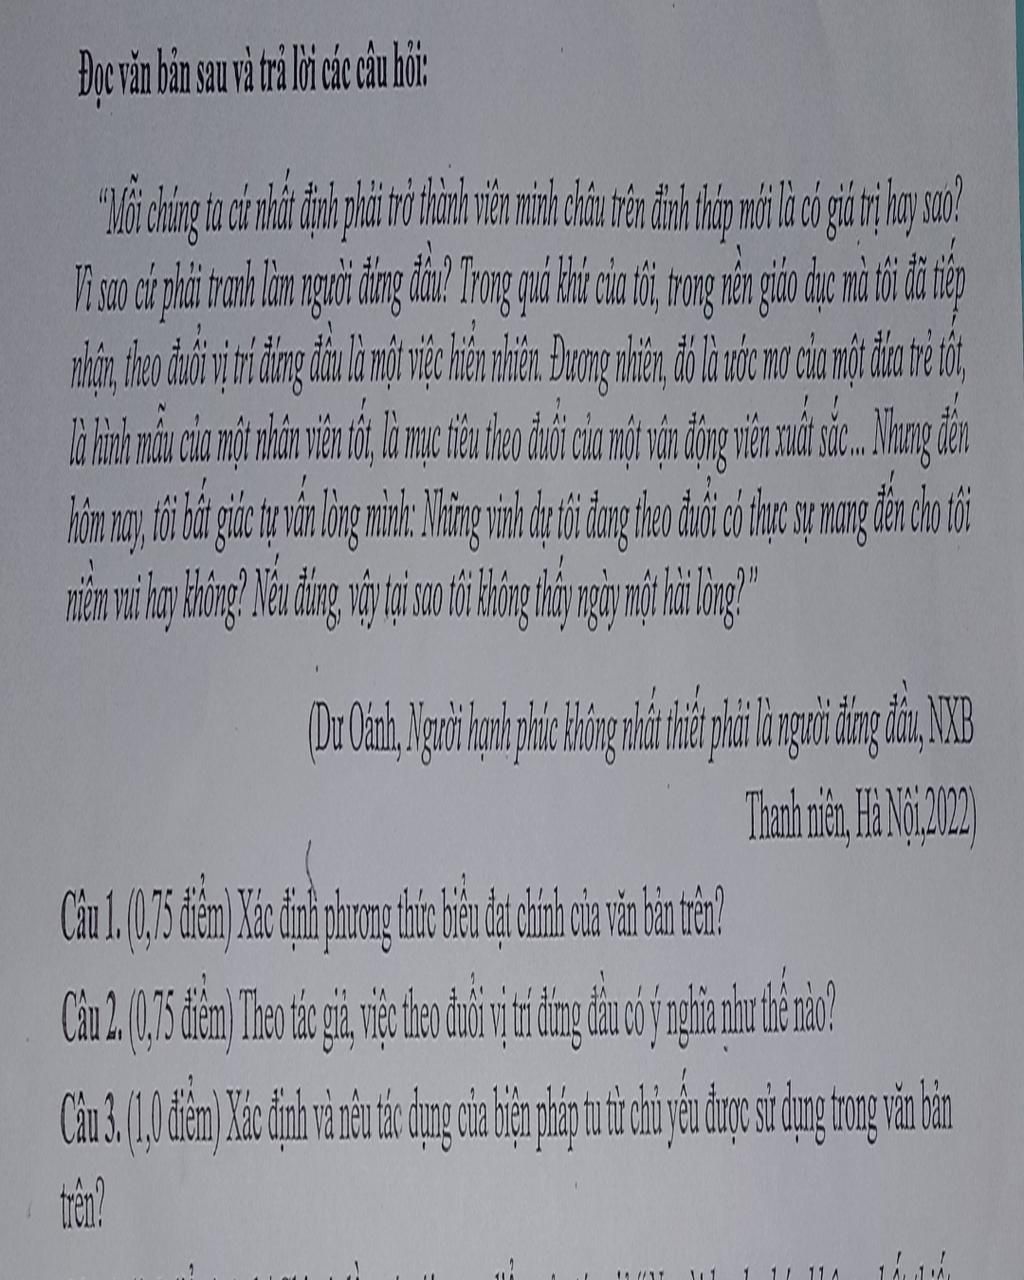 Đọc văn bản sau và trả lời các câu hỏi:
“Mỗi chúng ta cứ nhất định phải trở thành viên minh châu trên đỉnh tháp mới là có giá trị hay sao?
Vì sao cứ phải tranh làm người đứng đầu? Trong quá khứ của tôi, trong nền giáo dục mà tôi đã tiếp
nhận, theo đuổi vị trí đứng đầu là một việc hiển nhiên. Đương nhiên, đó là ước mơ của một đứa trẻ tốt,
là hình mẫu của một nhân viên tốt, là mục tiêu theo đuổi của một vận động viên xuất sắc... Nhưng đến
hôm nay, tôi bất giác tự vấn lòng mình: Những vinh dự tôi đang theo đuổi có thực sự mang đến cho tôi
niềm vui hay không? Nếu đúng, vậy tại sao tôi không thấy ngày một hài lòng?”
(Dư Oánh, Người hạnh phúc không nhất thiết phải là người đứng đầu, NXB
Thanh niên, Hà Nội,2022)
Câu 1. (0,75 điểm) Xác định phương thức biểu đạt chính của văn bản trên?
Câu 2. (0,75 điểm) Theo tác giả, việc theo đuổi vị trí đứng đầu có ý nghĩa như thế nào?
Câu 3. (1,0 điểm) Xác định và nêu tác dụng của biện pháp tu từ chủ yếu được sử dụng trong văn bản
trên?